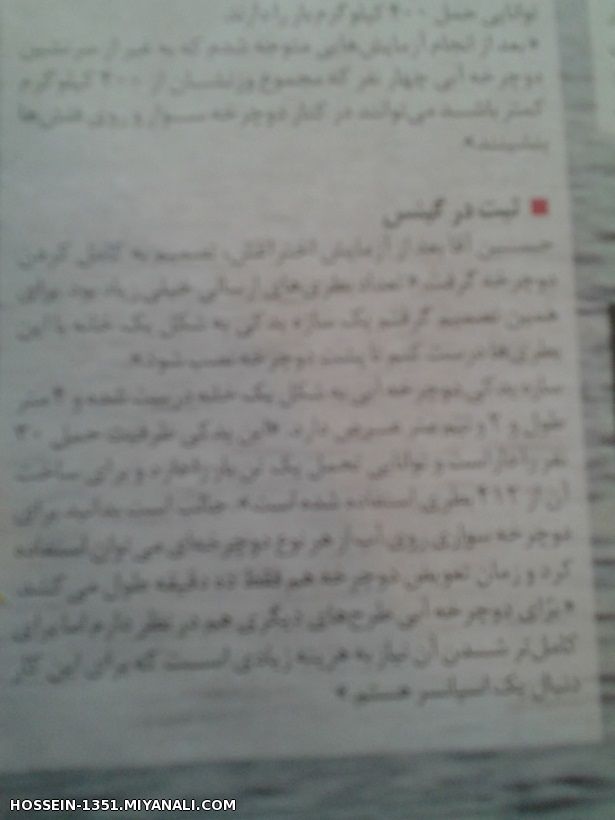 توانایی حمل ۴۰۰ کیلوگرم بار را دارند.
«بعد از انجام آزمایش‌هایی متوجه شدم که به غیر از سرنشین
دوچرخه آبی چهار نفر که مجموع وزنشان از ۴۰۰ کیلوگرم
کمتر باشد می‌توانند در کنار دوچرخه سوار و روی
بنشینند.»
ثبت در گینس
حسین آقا بعد از آزمایش اختراعش، تصمیم به کامل کردن
دوچرخه گرفت. «تعداد بطری‌های ارسالی خیلی زیاد بود برای
همین تصمیم گرفتم یک سازه یدکی به شکل یک خانه با این
بطری‌ها درست کنم تا پشت دوچرخه نصب شود.»
سازه یدکی دوچرخه آبی به شکل یک خانه دربست شده و ۴ متر
طول و ۲ و نیم متر عرض دارد. «این یدکی ظرفیت حمل ۲۰
نفر را داراست و توانایی تحمل یک تن بار را دارد و برای ساخت
آن از بطری استفاده شده است». جالب است بدانید برای
دوچرخه سواری روی آب از هر نوع دوچرخه‌ای می‌توان استفاده
کرد و زمان تعویض دوچرخه هم فقط ده دقیقه طول می‌کشد.
«برای دوچرخه آبی طرح‌های دیگری هم در نظر دارم اما برای
کامل‌تر شدن آن نیاز به هزینه زیادی است که برای این کار
دنبال یک اسپانسر هستم.»
HOSSEIN-1351.MIYANALI.COM